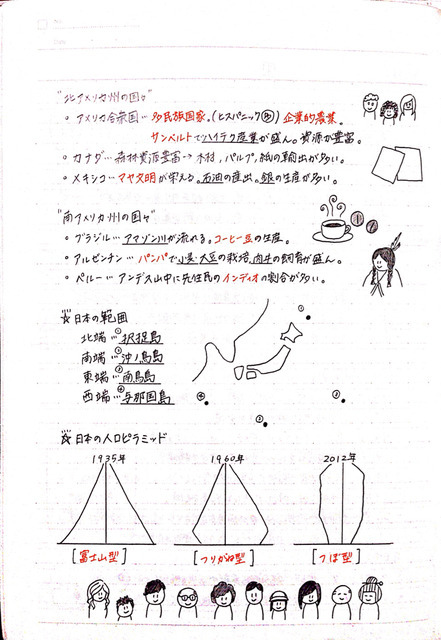 "北アメリカ州の国々"
・アメリカ合衆国…多民族国家。(ヒスパニック多) 企業的農業。
サンベルトでハイテク産業が盛ん。資源が豊富。
・カナダ…森林資源豊富→木材、パルプ、紙の輸出が多い。
・メキシコ…マヤ文明が栄える。石油の産出。銀の生産が多い。
"南アメリカ州の国々"
・ブラジル…アマゾン川が流れる。コーヒー豆の生産。
・アルゼンチン…パンパで小麦・大豆の栽培、肉牛の飼育が盛ん。
・ペルー…アンデス山中に先住民のインディオの割合が多い。
☆日本の範囲
北端…①択捉島
南端…②沖ノ鳥島
東端…③南鳥島
西端…④与那国島
①
④
③
②
☆日本の人口ピラミッド
1935年 1960年 2012年
[富士山型] [つりがね型] [つぼ型]